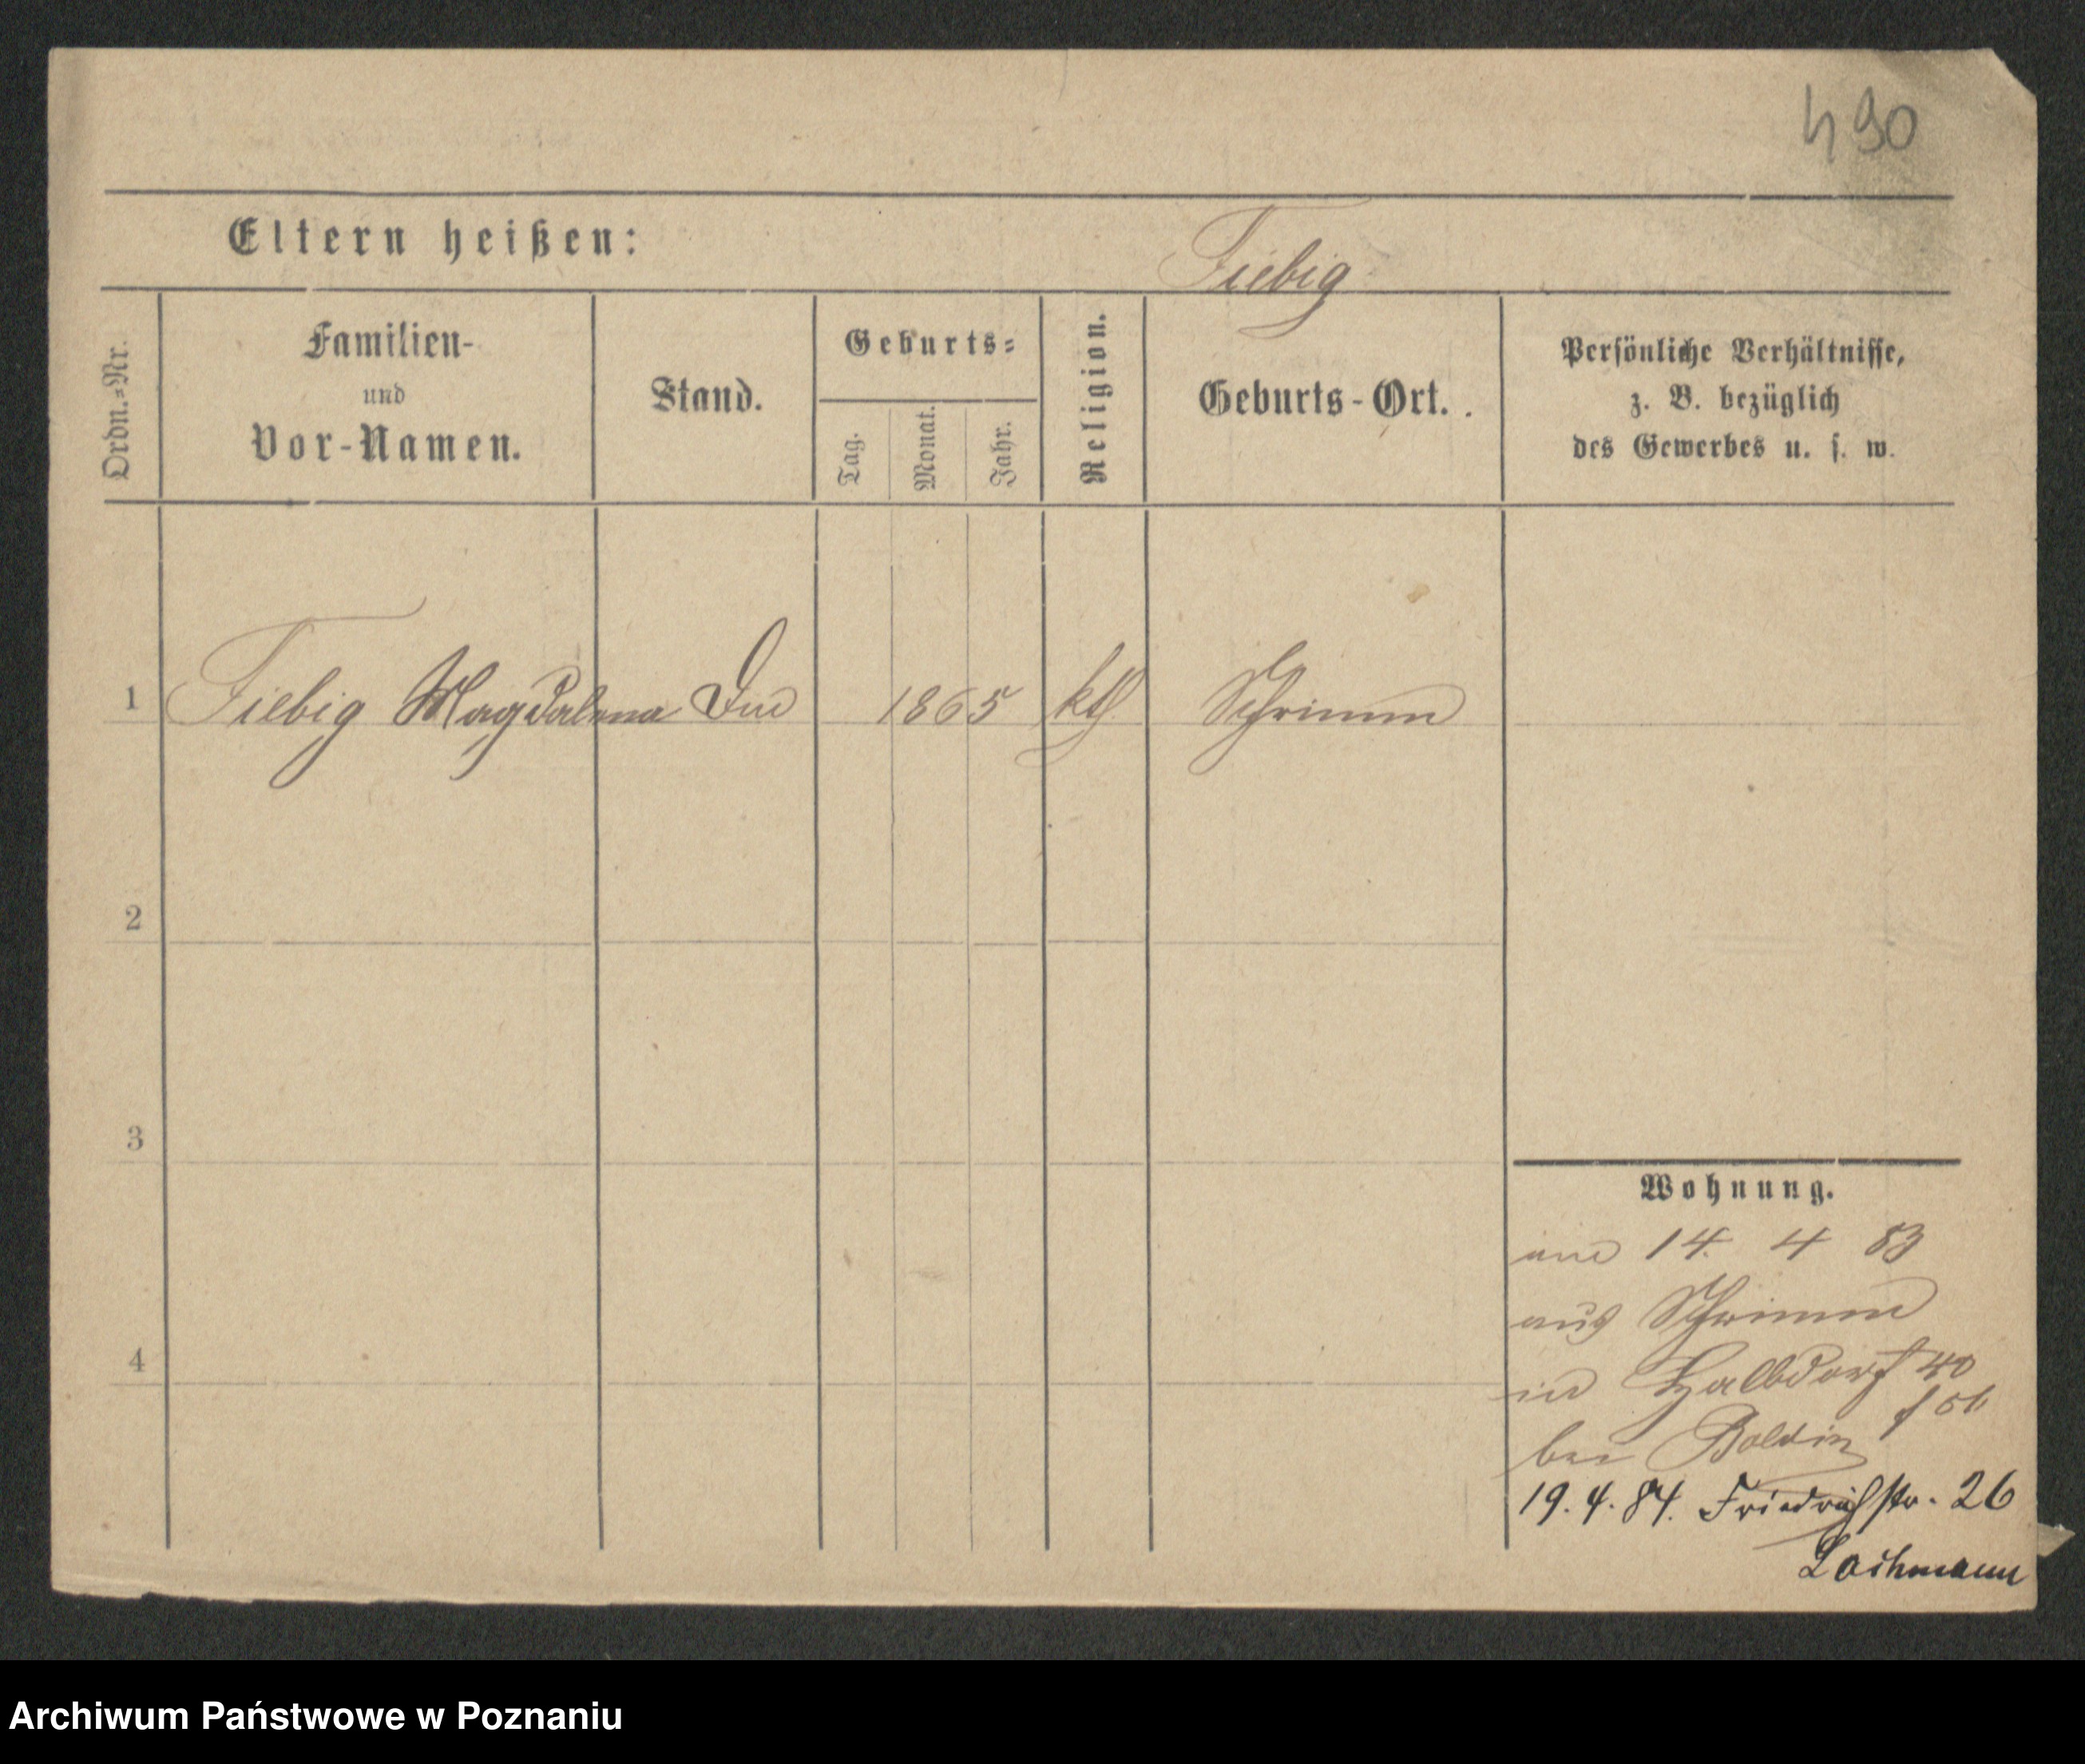 490
Eltern heißen:
Fiebig
Ordn.-Nr.
Familien-
und
Vor-Namen.
Stand.
Geburts-
Tag.
Monat.
Jahr.
Religion.
Geburts-Ort.
Persönliche Verhältnisse,
z. B. bezüglich
des Gewerbes u. s. w.
1 Fiebig Magdalena 1865 kth Schrimm
2
3
4
Wohnung.
14. 4 83
aus Schrimm
in Halbdorf 40
bei
19. 4. 84. Friedrichstr. 26
Lachmann
Archiwum Państwowe w Poznaniu